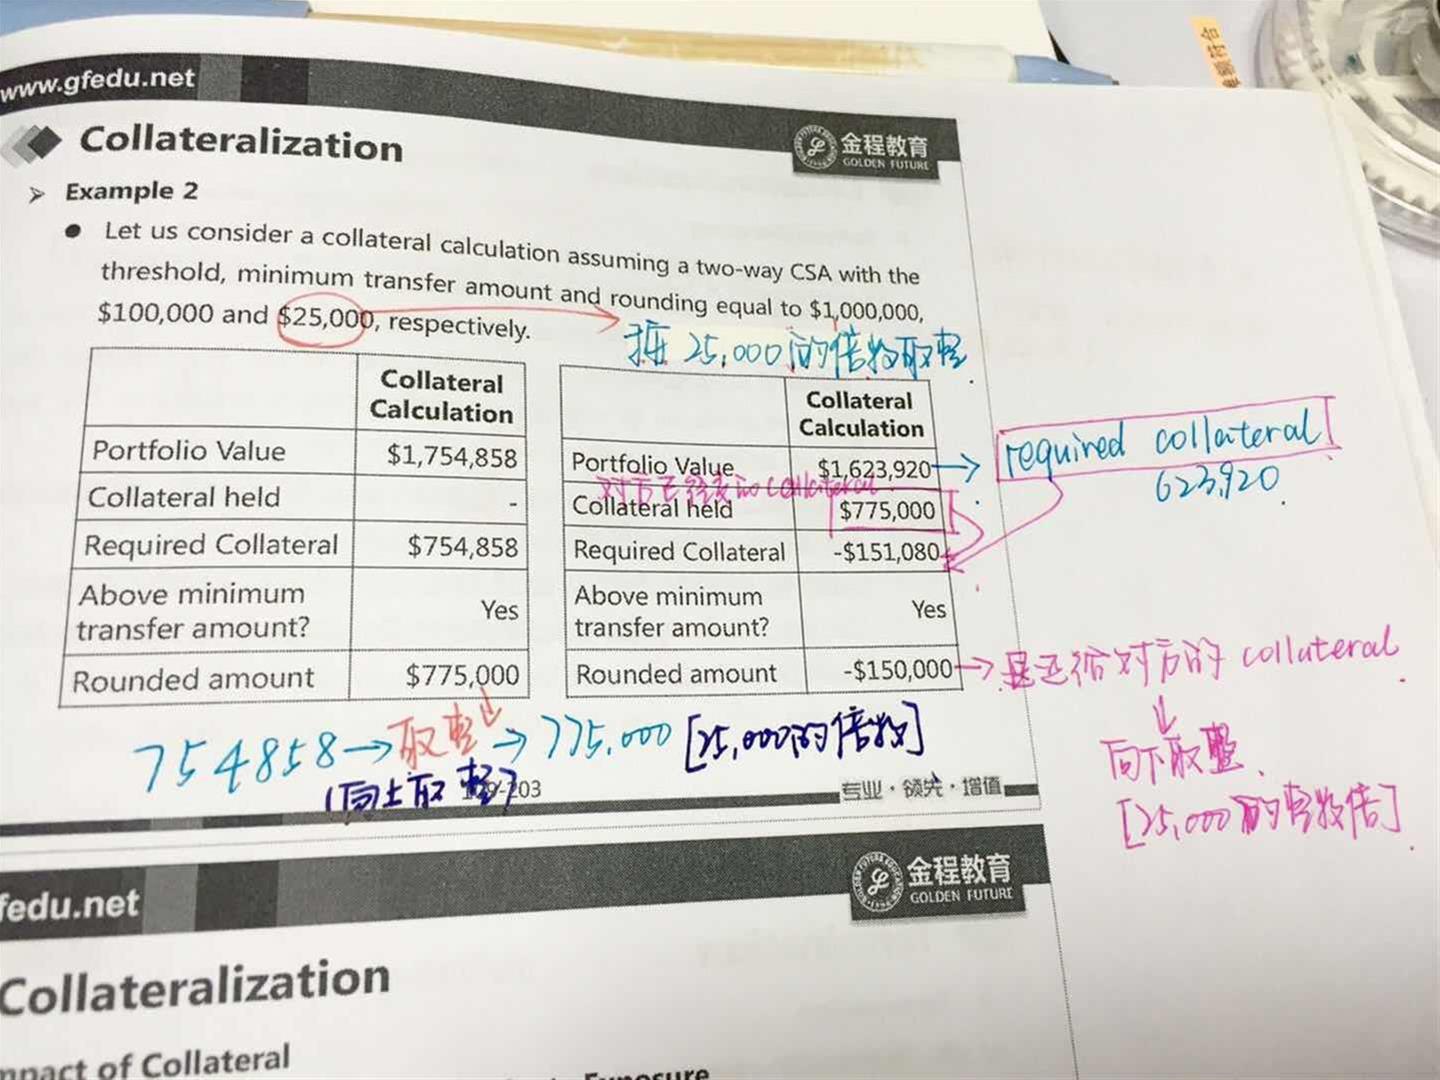 www.gfedu.net
金程教育
GOLDEN FUTURE
Collateralization
➢ Example 2
● Let us consider a collateral calculation assuming a two-way CSA with the
threshold, minimum transfer amount and rounding equal to $1,000,000,
$100,000 and $25,000, respectively.
按 25,000的倍数取整
Collateral Calculation
Portfolio Value $1,754,858
Collateral held -
Required Collateral $754,858
Above minimum transfer amount? Yes
Rounded amount $775,000
Collateral Calculation
Portfolio Value $1,623,920
对方已经交的collateral
Collateral held $775,000
Required Collateral -$151,080
Above minimum transfer amount? Yes
Rounded amount -$150,000
required collateral
623,920
是还给对方的 collateral
向下取整
[25,000的整数倍]
754858→取整→775,000 [25,000的倍数]
(向上取整)
203
专业·领先·增值
fedu.net
金程教育
GOLDEN FUTURE
Collateralization
mpact of Collateral
Exposure